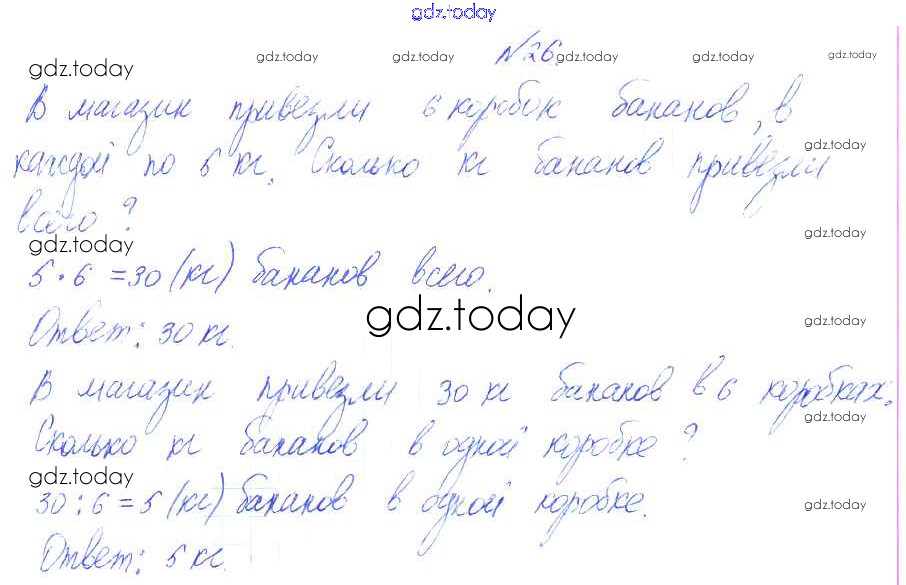 gdz.today
№26.
gdz.today gdz.today gdz.today gdz.today gdz.today gdz.today
В магазин привезли 6 коробок бананов, в
gdz.today
каждой по 5 кг. Сколько кг бананов привезли
всего?
gdz.today gdz.today
5 · 6 = 30 (кг) бананов всего.
gdz.today gdz.today
Ответ: 30 кг.
В магазин привезли 30 кг бананов в 6 коробках.
gdz.today
Сколько кг бананов в одной коробке?
gdz.today
30 : 6 = 5 (кг) бананов в одной коробке.
gdz.today
Ответ: 5 кг.